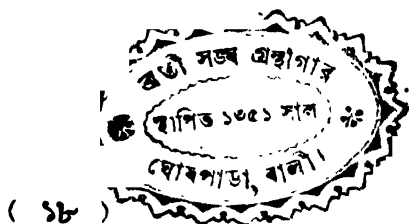 ব্রতী সঙ্ঘ গ্রন্থাগার
স্থাপিত ১৩৫১ সাল
ঘোষপাড়া, বালী।
( ১৮ )